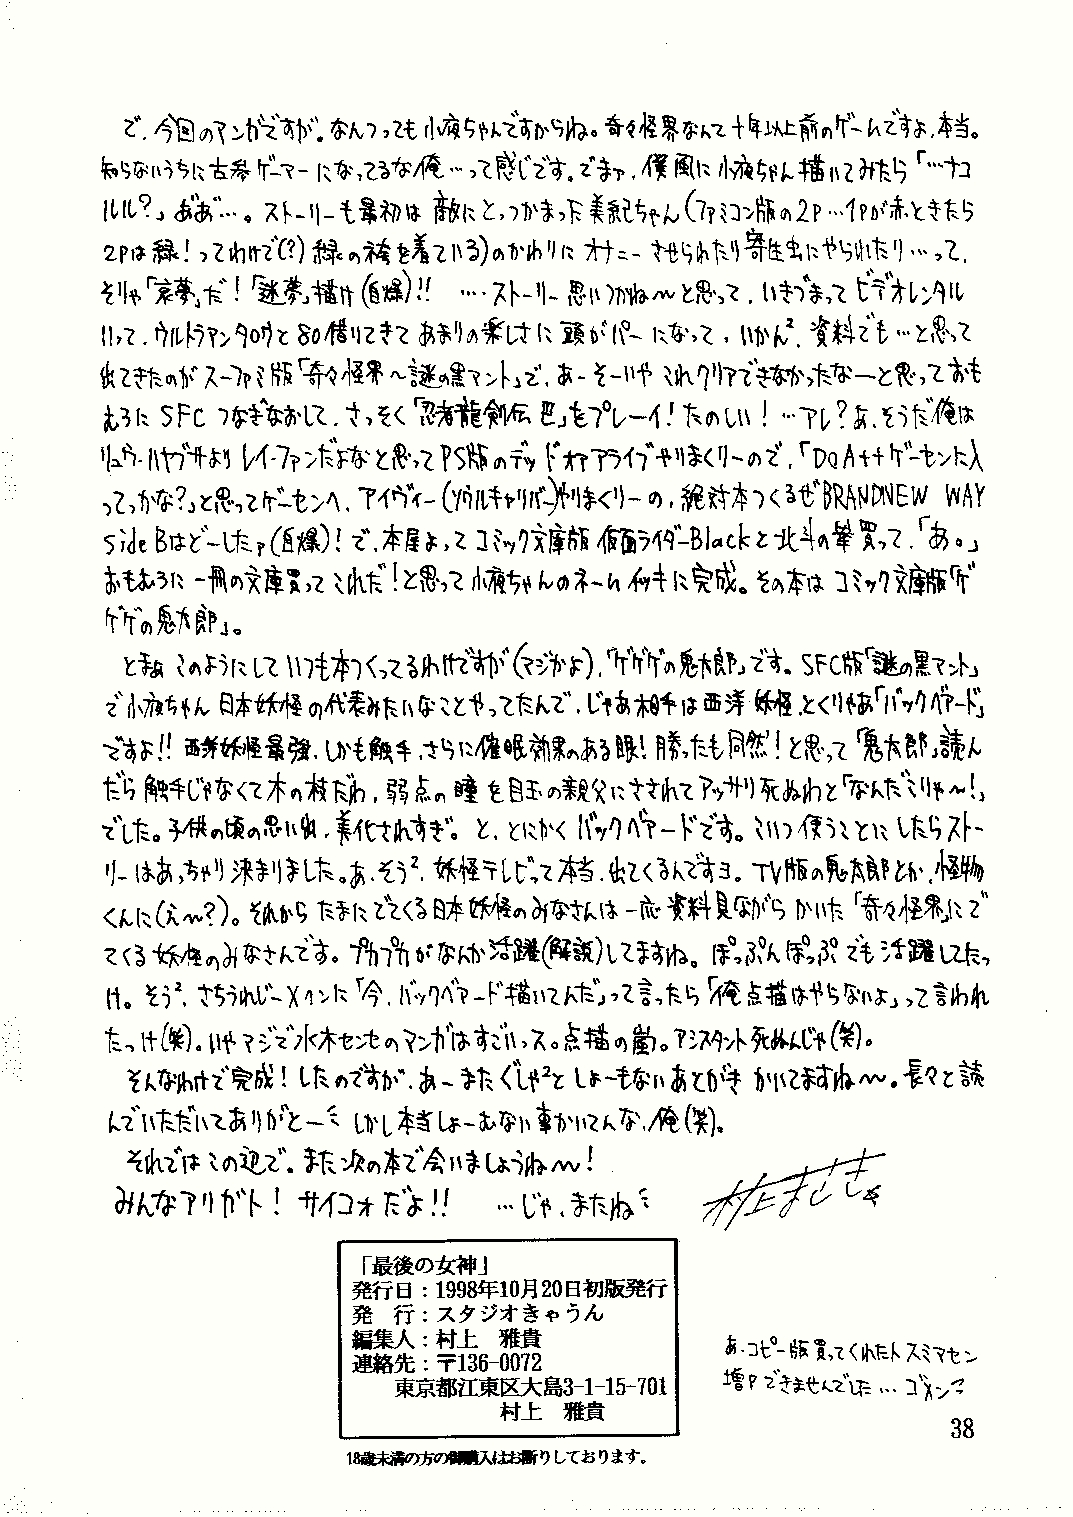 で、今回のマンガですが。なんつっても小夜ちゃんですからね。奇々怪界なんて十年以上前のゲームですよ、本当。
知らないうちに古参ゲーマーになってるな俺…って感じです。でまァ、僕風に小夜ちゃん描いてみたら「…ナコ
ルル?」ああ…。ストーリーも最初は敵にとっつかまった美紀ちゃん(ファミコン版の2P…1Pが赤ときたら
2Pは緑!ってわけで(?)緑の袴を着ている)のかわりにオナニーさせられたり寄生虫にやられたり…って、
そりゃ「哀夢」だ!「謎夢」描け(自爆)!! …ストーリー思いつかね〜と思って、いきづまってビデオレンタル
いって、ウルトラマンタロウと80借りてきてあまりの楽しさに頭がパーになって、いかん²、資料でも…と思って
出てきたのがスーファミ版「奇々怪界〜謎の黒マント」で、あーそーいやこれクリアできなかったなーと思っておも
むろにSFCつなぎなおして、さっそく「忍者龍剣伝巴」をプレーイ!たのしい!…アレ?あ、そうだ俺は
リュウ・ハヤブサよりレイ・ファンだよなと思ってPS版のデッドオアアライブやりまくりーので、「DOA++ゲーセンに入
ってっかな?」と思ってゲーセンへ、アイヴィー(ソウルキャリバー)やりまくりーの、絶対本つくるぜBRANDNEW WAY
side Bはどーしたァ(自爆)!で、本屋よってコミック文庫版仮面ライダーBlackと北斗の拳買って、「あ。」
おもむろに一冊の文庫買ってこれだ!と思って小夜ちゃんのネームイッキに完成。その本はコミック文庫版「ゲ
ゲゲの鬼太郎」。
とまぁこのようにしていつも本つくってるわけですが(マジかよ)、「ゲゲゲの鬼太郎」です。SFC版「謎の黒マント」
で小夜ちゃん日本妖怪の代表みたいなことやってたんで、じゃあ相手は西洋妖怪、とくりゃあ「バックベアード」
ですよ!!西洋妖怪最強、しかも触手、さらに催眠効果のある眼!勝ったも同然!と思って「鬼太郎」読ん
だら触手じゃなくて木の枝だわ、弱点の瞳を目玉の親父にさされてアッサリ死ぬわと「なんだこりゃ〜!」
でした。子供の頃の思い出、美化されすぎ。と、とにかくバックベアードです。こいつ使うことにしたらストー
リーはあっちゃり決まりました。あ、そう²、妖怪テレビって本当、出てくるんですヨ。TV版の鬼太郎とか、怪物
くんに(え〜?)。それからたまにでてくる日本妖怪のみなさんは一応資料見ながらかいた「奇々怪界」にで
てくる妖怪のみなさんです。プカプカがなんか活躍(解説)してますね。ぽっぷんぽっぷでも活躍してたっ
け。そう²、さちうれじーXインに「今、バックベアード描いてんだ」って言ったら「俺点描はやらないよ」って言われ
たっけ(笑)。いやマジで水木センセのマンガはすごいっス。点描の嵐。アシスタント死ぬんじゃ(笑)。
そんなわけで完成!したのですが、あーまたぐしゃ²としょーもないあとがきかいてますね〜。長々と読
んでいただいてありがとー しかし本当しょーむない事かいてんな、俺(笑)。
それではこの辺で。また次の本で会いましょうね〜!
みんなアリガト! サイコォだよ!! …じゃ、またね
村上まさき
「最後の女神」
発行日:1998年10月20日初版発行
発 行:スタジオきゃうん
編集人:村上 雅貴
連絡先:〒136-0072
東京都江東区大島3-1-15-701
村上 雅貴
18歳未満の方の御購入はお断りしております。
あ、コピー版買ってくれた人スミマセン
増Pできませんでした…ゴメンヨ
38